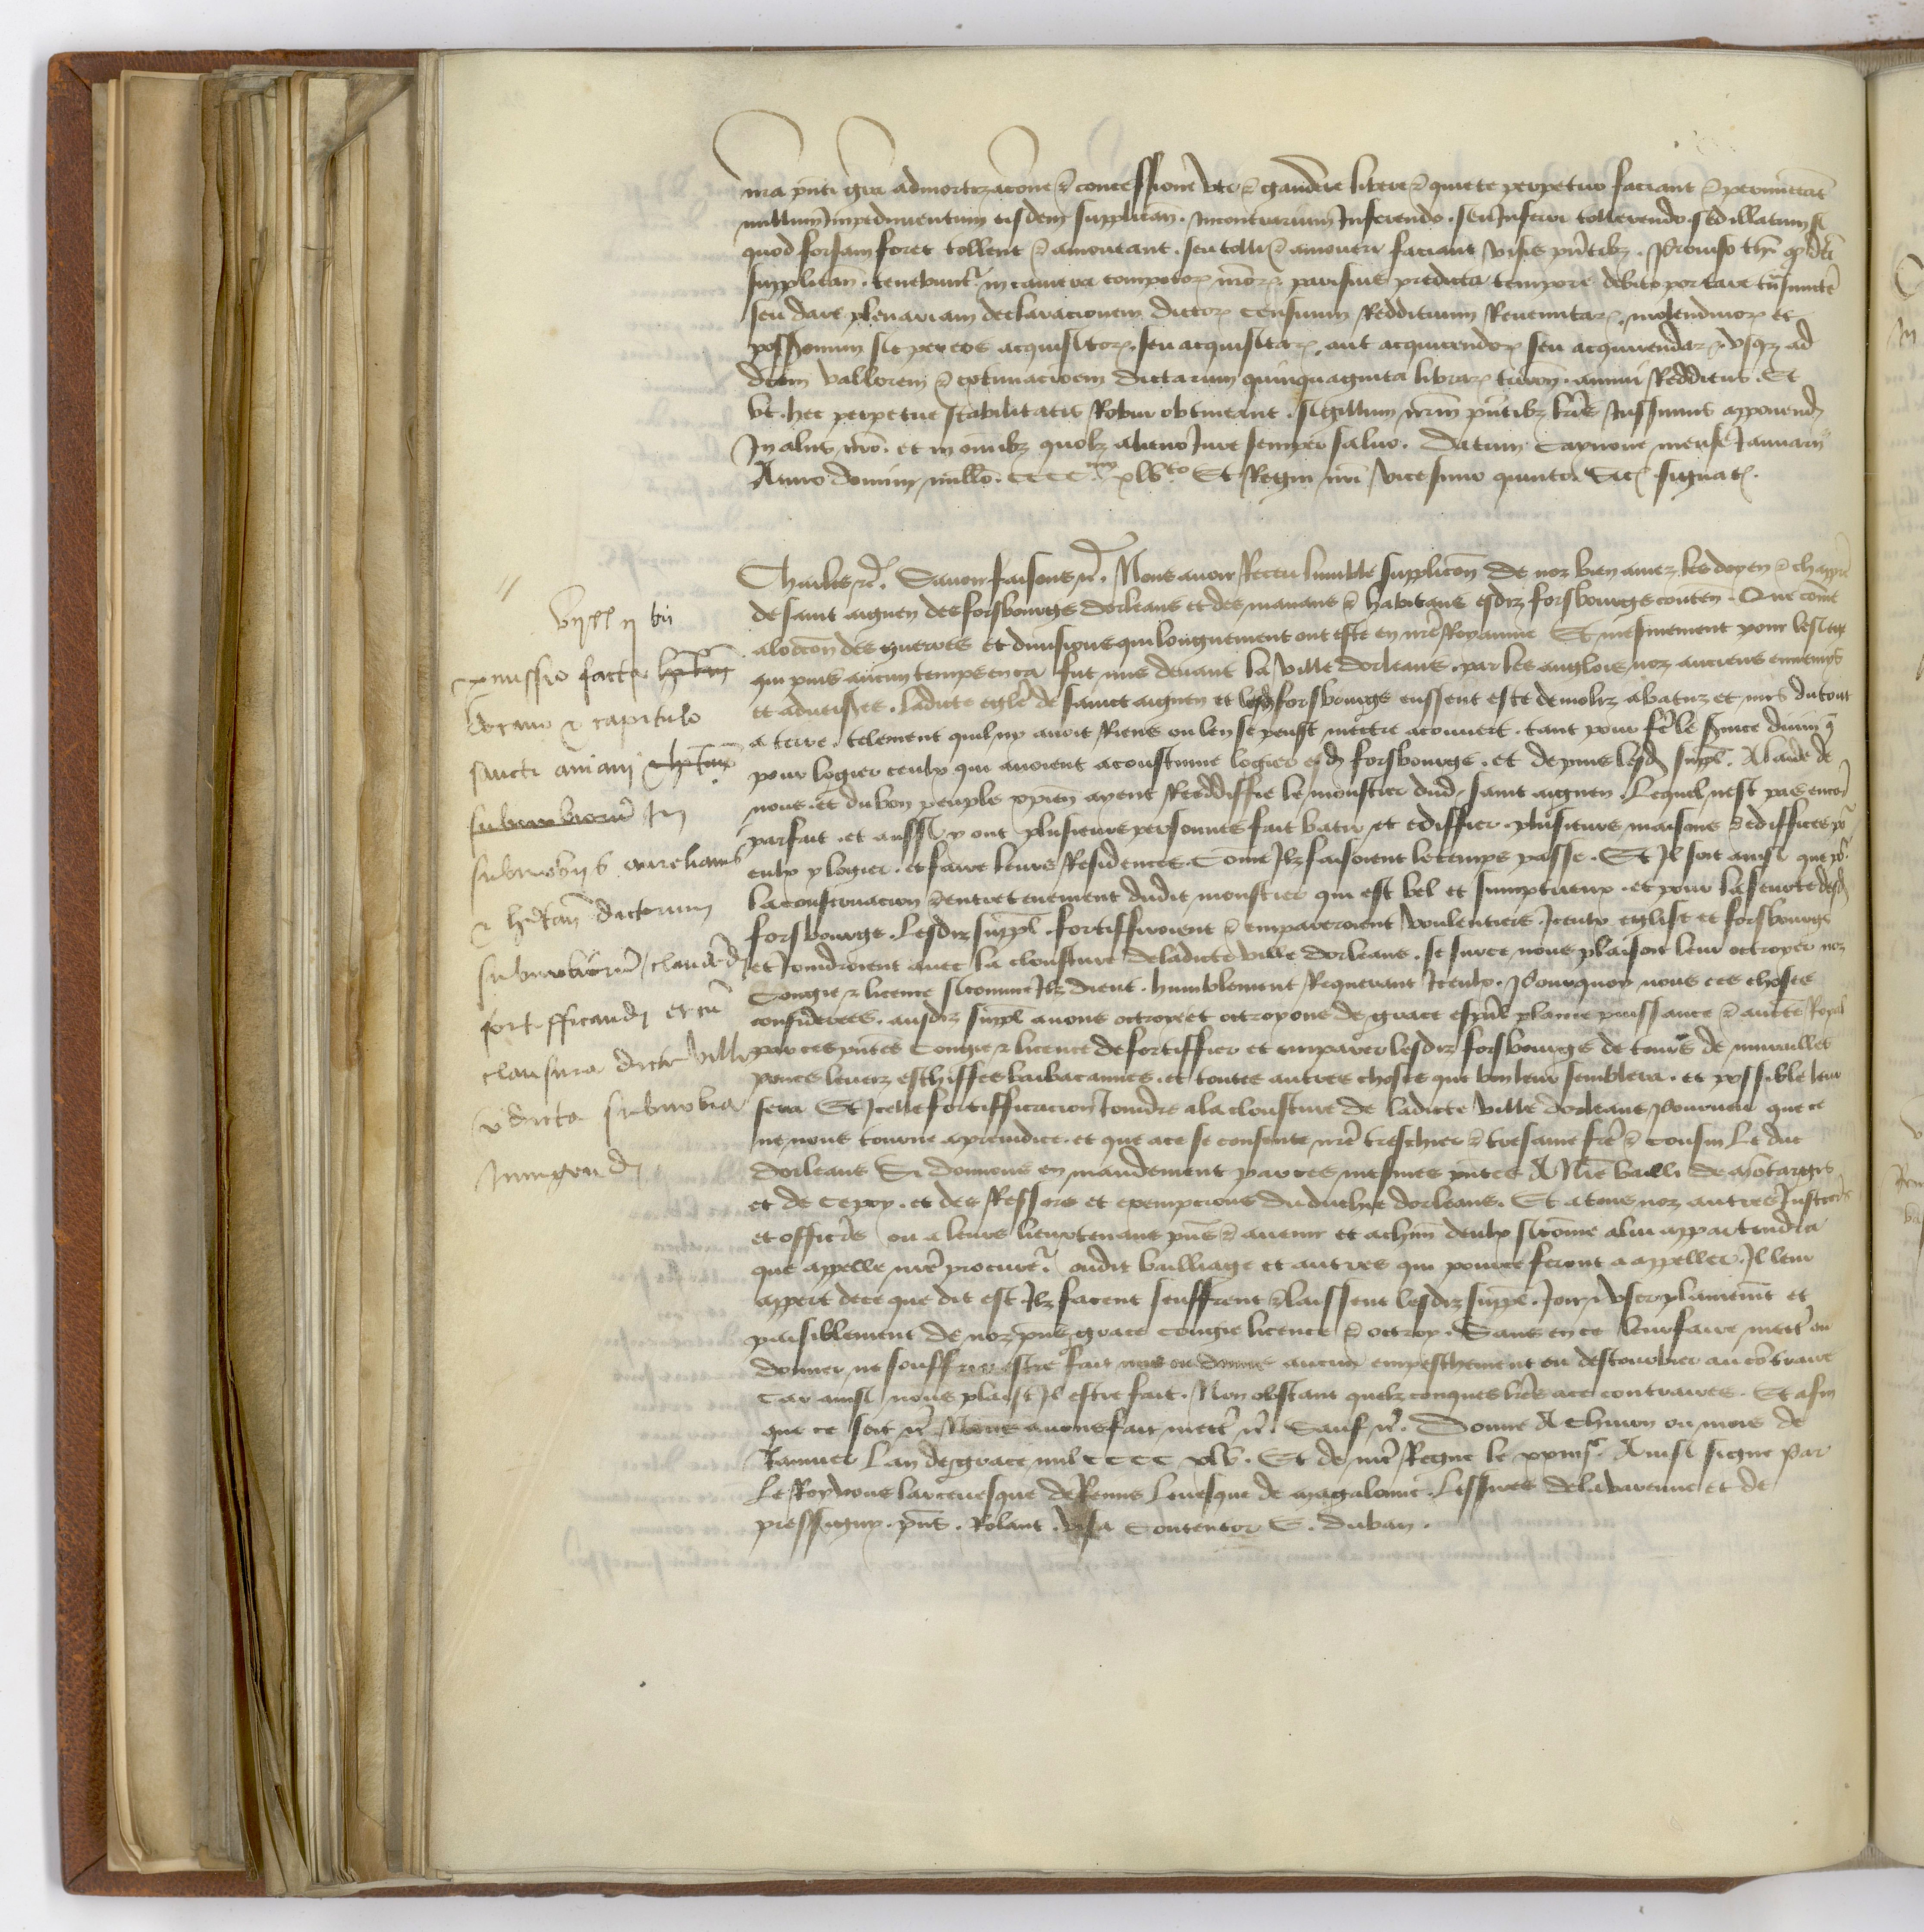 nra pnti gra admortizacone & concessione uti & gaudere libere & quiete perpetuo faciant & permittant
nullum Impedimentum eisdem supplican. incontrarium Inferendo. seu Inferri tollerendo. sed illatum si
quod forsam foret tollent & amoveant. seu tolli & amoveri faciant visis pntibz. Proviso tn q dcti
supplican. tenebunt in camera compotor nror parisius predicta tempore debito portare
seu dare plenariam declaracionem dictor censuum Reddituum Revenutar. molendinor et
possessionum sic per eos acquisitor. seu acquisitar. aut acquirendor seu acquirendar. usqz ad
dcam vallorem & extimacionem dictarum quinquaginta librar turon. annui Redditus. Et
ut hec perpetue stabilitatis Robur obtineant. sigillum nrm pntibz lris Jussimus apponend
In aliis nro. et in omibz quolz alieno Jure semper salvo. Datum Caynone mense Januarii
Anno domini millo. CCCCmo xlvto Et Regni nri vicesimo quarto. Sic signat.
Charles etc. Savoir faisons etc. Nous avoir Receu lumble supplicon de noz bien amez les doyen & chappre
de saint aignen des forsbourgs dorleans et des manans & habitans esdiz forsbourgs conten. Que come
alocon des guerres et divisions qui longuement ont este en nre Royaume Et mesmement pour le siege
qui puis aucun temps enca fut mis devant la ville dorleans. par les anglois noz anciens ennemys
et adversres. Ladicte eglise de sainct aignen et lesd forsbourgs eussent este demoliz abatuz et mis du tout
a terre. telement quil ny avoit Riens ou len se peust mectre acouvert. tant pour fe le svice divin q
pour logier ceulx qui avoient acoustume logier esd forsbourgs. et depuis lesd suppl. A laide de
nous. et du bon peuple xpien ayent Reediffie le monstier dud. saint aignen. Lequel nest pas encor
parfait. et aussi y ont plusieurs personnes fait bastir et ediffier plusieurs maisons & ediffices pr
eulx y logier. et faire leurs Residences. Come Ilz faisoient le temps passe. Et Il soit ainsi que pr
la conservacion & entretenement dudit monstier qui est bel et sumptueux. et pour la seurte desd
forsbourgs. Lesdiz suppl. fortiffieroient & empareroient voulentiers Iceulx eglise et forsbourgs
et Joindroient avec la clousture deladicte ville dorleans. se surce nous plaisoit leur octroyer noz
Congie & licence sicomme Ilz dient. humblement Requerant Iceulx. Pourquoy nous ces choses
considerees. ausdiz suppl avons octroye et octroyons de grace espal plaine puissance & aucte Royal
par ces pntes Congie & licence de fortiffier et emparer lesdiz forsbourgs de tours de murailles
pons leveiz eschiffes barbacannes. et toutes autres choses que bon leur semblera. et possible leur
sera Et Icelle fortifficacion Joindre ala clousture de ladicte ville dorleans Pourveu que ce
ne nous tourne apreiudice. et que ace se consente nre treschier & tresame fre & cousin Le duc
dorleans Si donnons en mandement par ces mesmes pntes A Nre bailli de Montargis
et de Cepoy. et des Ressors et exempcions du duchie dorleans. Et atous noz autres Justiciers
et officiers ou a leurs lieuxtenans pns & avenir et achun deulx sicome alui appartendra
que appelle nre procur. oudit bailliage et autres qui pource seront a appeller. Il leur
appert dece que dit est Ilz facent seuffrent & laissent lesdiz suppl. Joir & user plainement et
paisiblement de noz pns grace congie licence & octroy. Sans en ce leur faire mettre ou
donner ne souffrir estre fait mis ou donne aucun empeschement ou destourbier au contraire
Car ainsi nous plaist Il estre fait. Non obstant quelzconques lres ace contraires. Et afin
que ce soit etc Nous avons fait mettre etc. Sauf etc. Donne A Chinon ou mois de
Janvier Lan de grace mil CCCC xlv. Et de nre Regne le xxiiiie. Ainsi signe Par
Le Roy vous larcevesque de Reims Levesque de magalonne. Les sires delavarenne et de
pressigny. pns. Rolant. Visa Contentor E. duban.
permissio facta
decano & capitulo
sancti aniani
suburbiorum In
suburbiis aurelianis
& habitan dictorum
suburbiorum claudend
fortifficandi et cu
clausura dicte ville
dicta suburbia
Iungendi